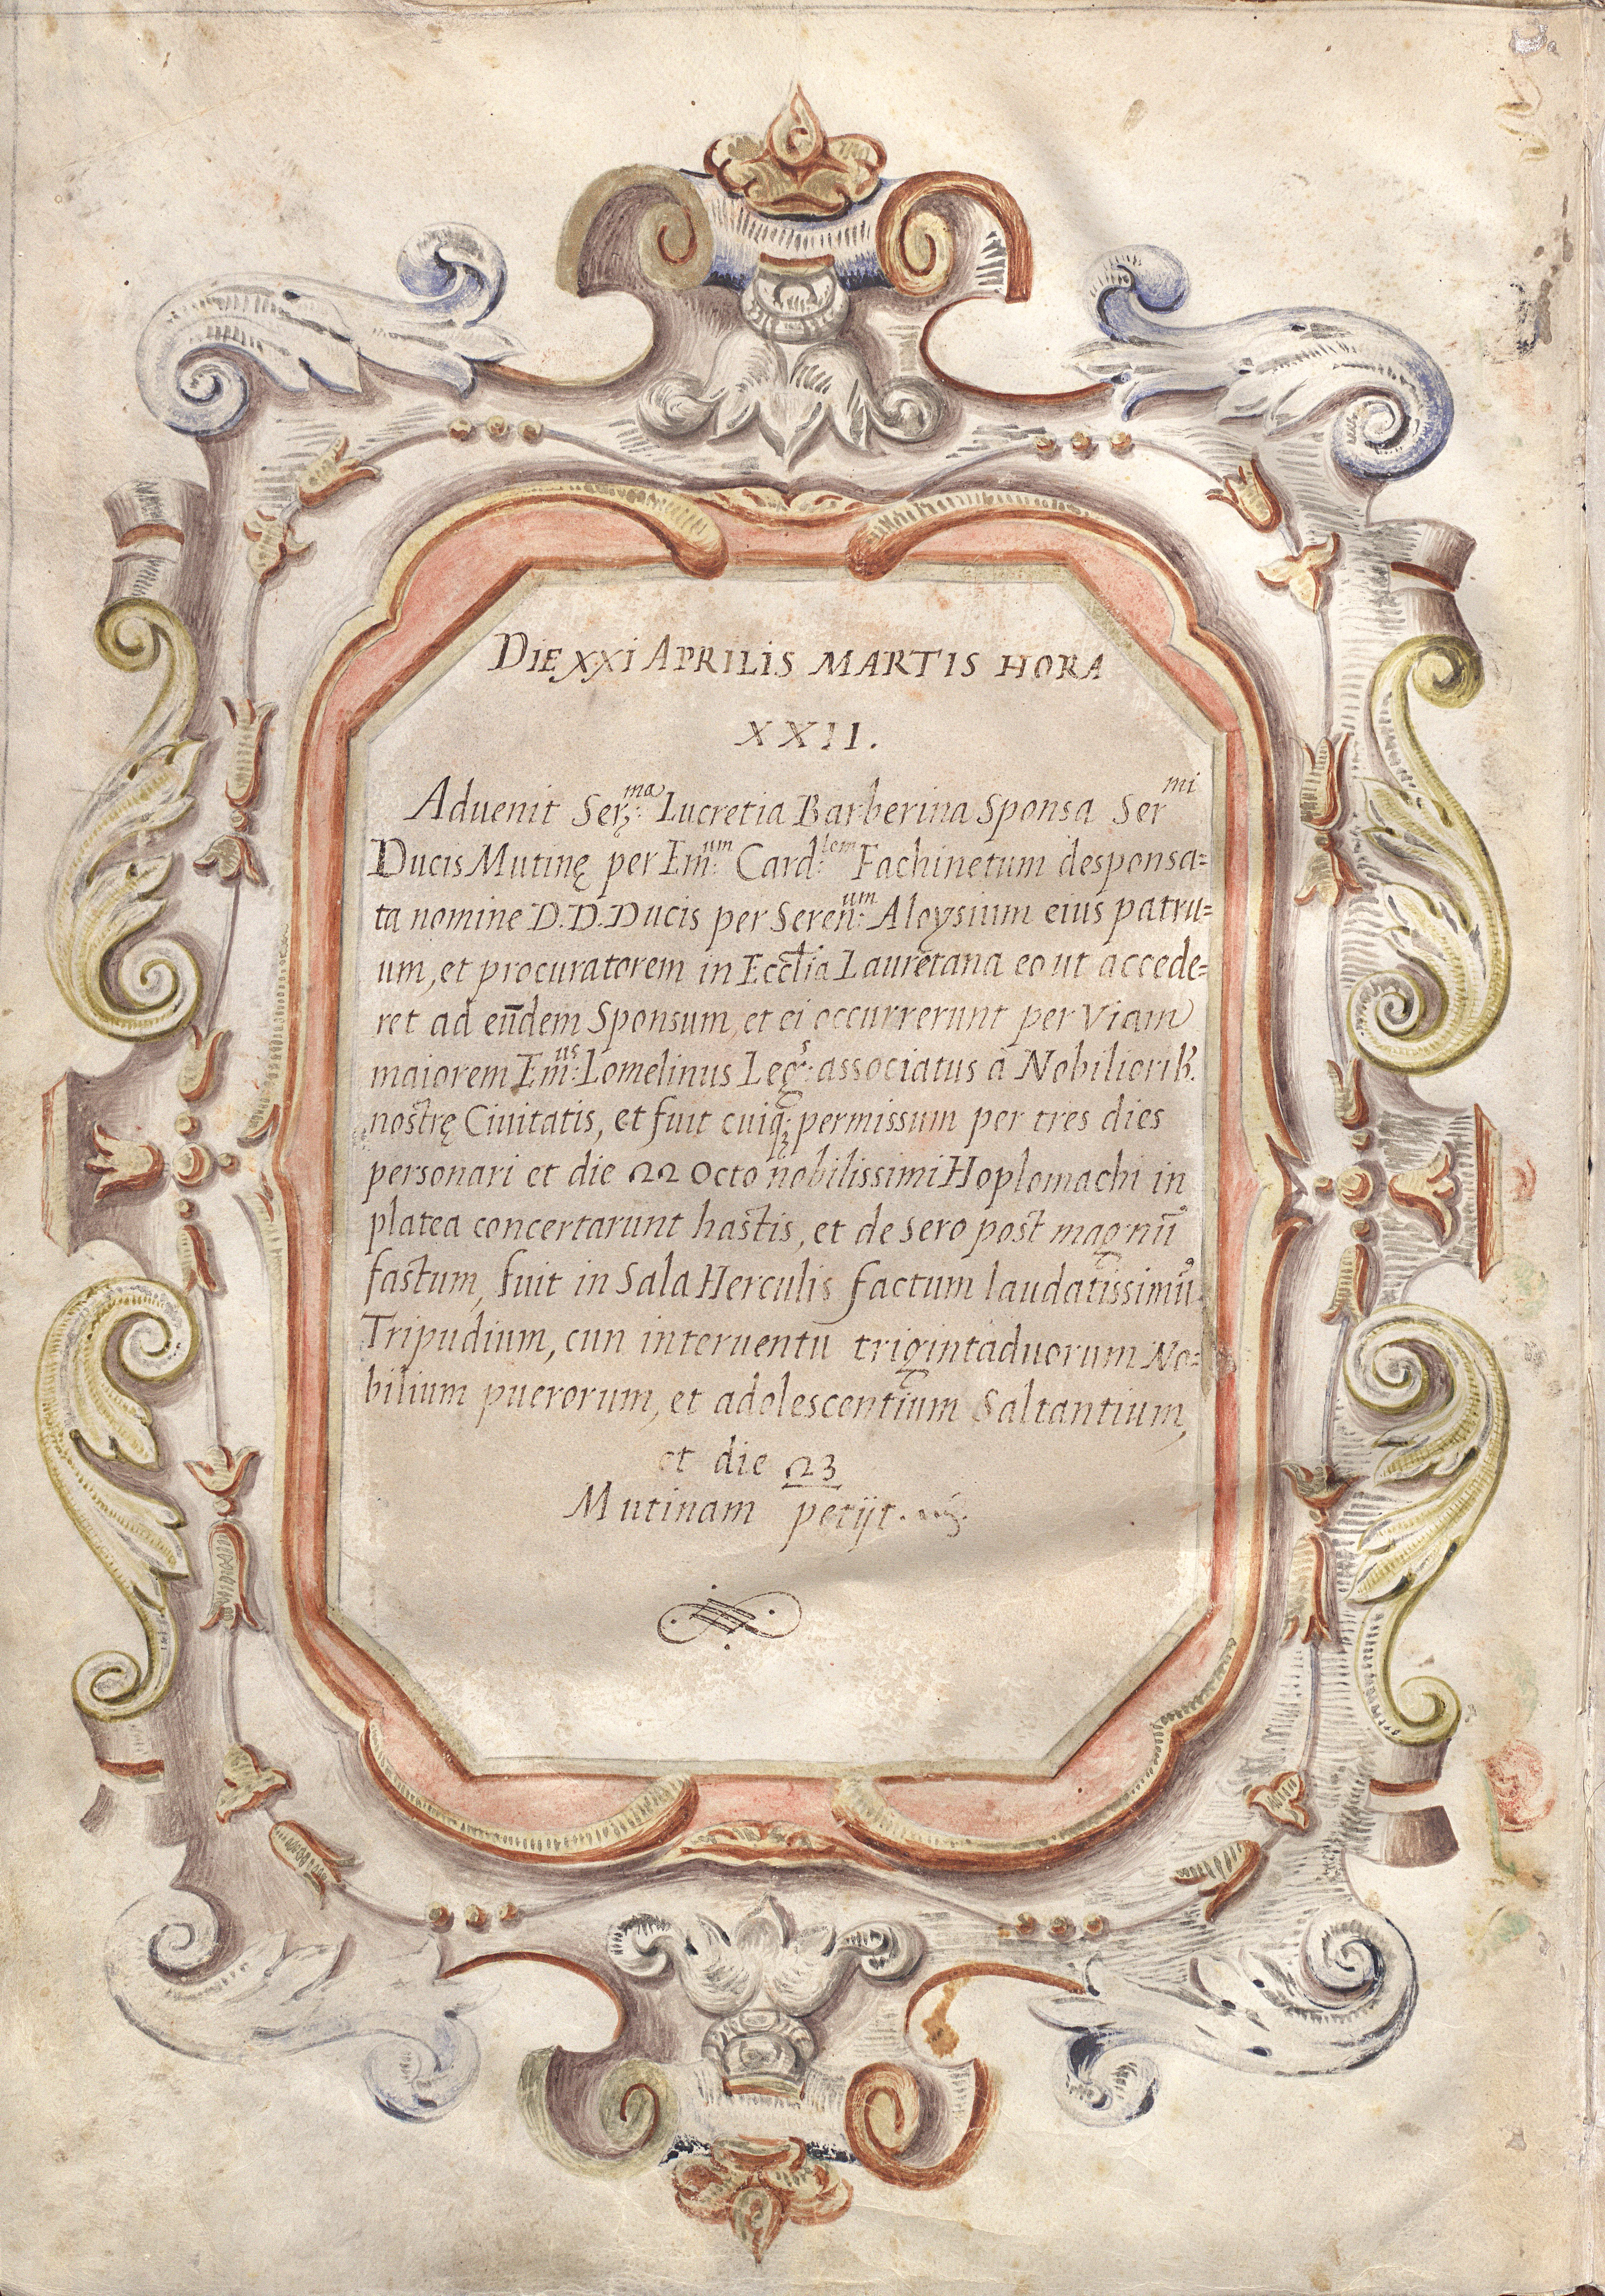 DIE XXI APRILIS MARTIS HORA
XXII.
Aduenit Ser:ma Lucretia Barberina Sponsa Sermi
Ducis Mutinę per Em̄:um Card:lem Fachinetum desponsa=
ta nomine D.D. Ducis per Seren̄:um Aloysium eius patru=
um, et procuratorem in Eccl̄ia Lauretana eo ut accede=
ret ad eūdem Sponsum, et ei occurrerunt per Viam
maiorem Em̄:us Lomelinus Leg:s associatus à Nobiliorib.
nostrę Ciuitatis, et fuit cuiq; permissum per tres dies
personari et die 22 Octo nobilissimi Hoplomachi in
platea concertarunt hastis, et de sero post magnū
fastum, fuit in Sala Herculis factum laudatissimū
Tripudium, cun interuentu trigintaduorum No=
bilium puerorum, et adolescentium Saltantium,
et die 23
Mutinam petijt.